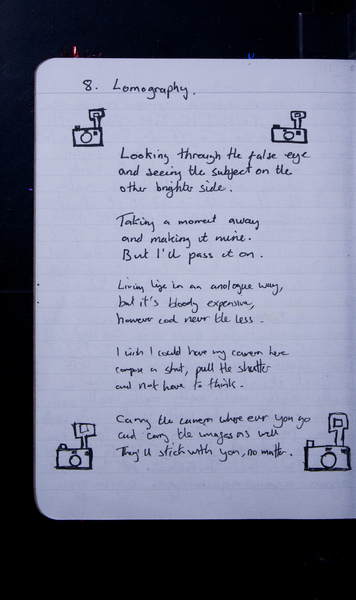 8. Lomography.
Looking through the false eye
and seeing the subject on the
other brighter side.
Taking a moment away
and making it mine.
But I'll pass it on.
Living life in an analogue way,
but it's bloody expensive,
however cool never the less.
I wish I could have my camera here
compose a shot, pull the shutter
and not have to think.
Carry the camera where ever you go
and carry the images as well
They'll stick with you, no matter.